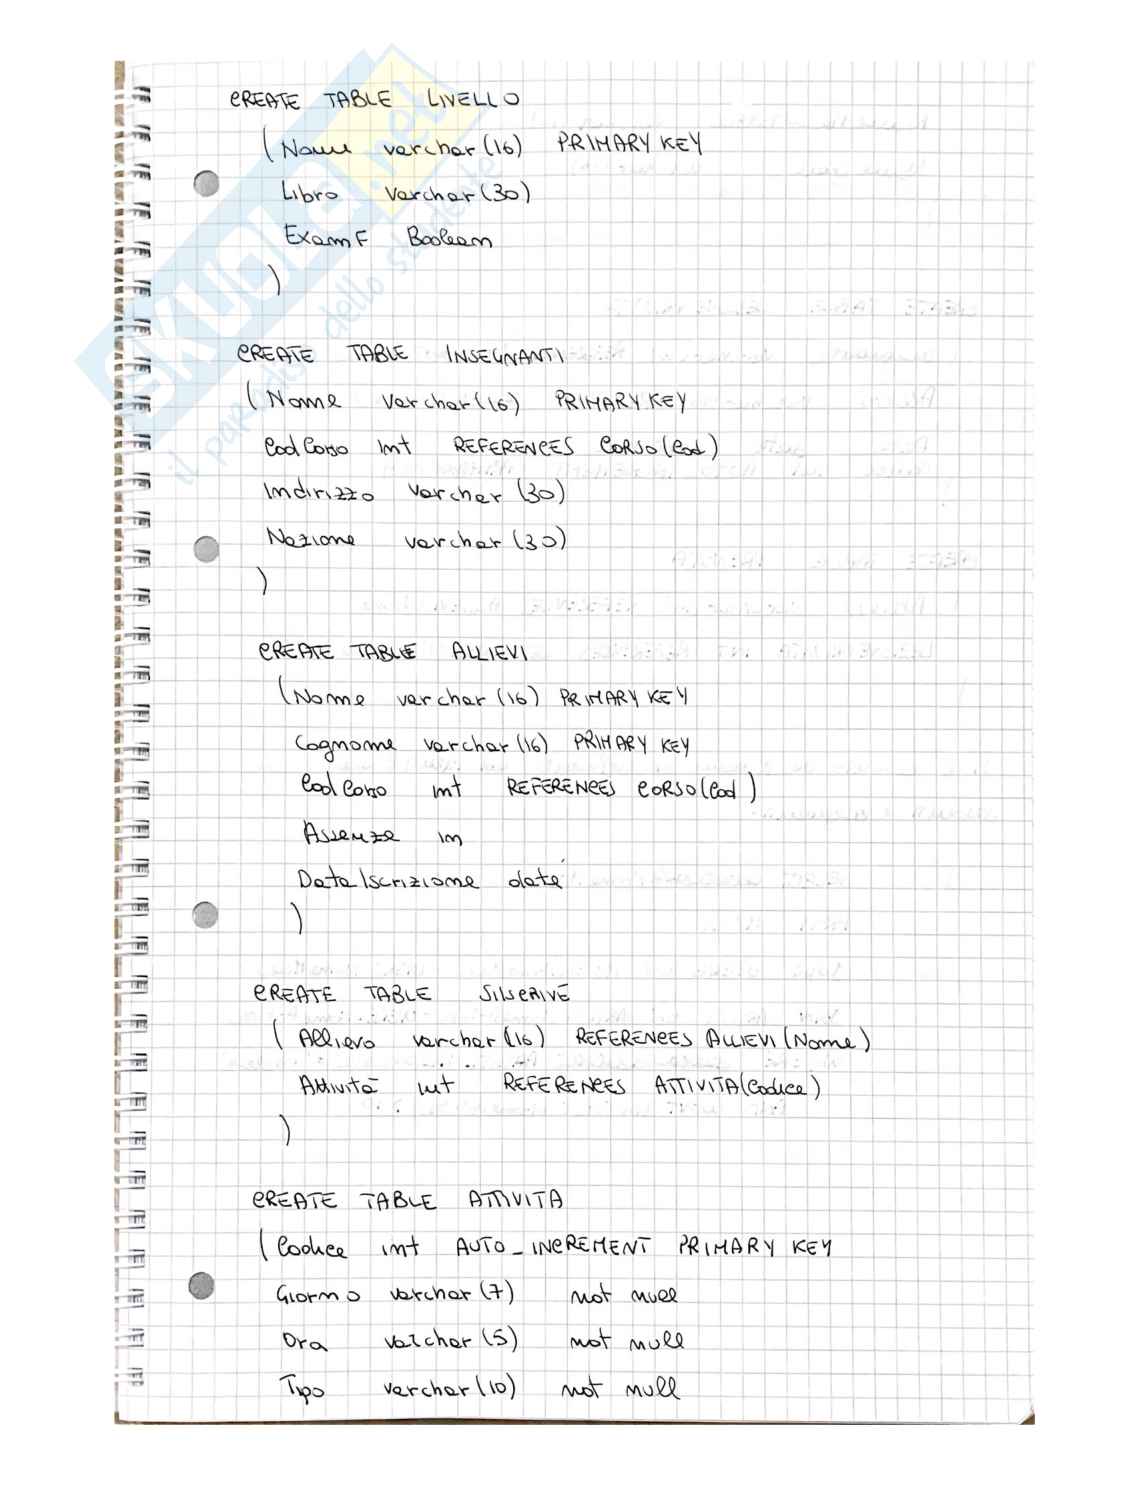 CREATE TABLE LIVELLO
(Nome varchar(16) PRIMARY KEY
Libro varchar(30)
ExamF Boolean
)
CREATE TABLE INSEGNANTI
(Nome varchar(16) PRIMARY KEY
CodCorso int REFERENCES CORSO(Cod)
Indirizzo varchar(30)
Nazione varchar(30)
)
CREATE TABLE ALLIEVI
(Nome varchar(16) PRIMARY KEY
Cognome varchar(16) PRIMARY KEY
CodCorso int REFERENCES CORSO(Cod)
Assenze in
DataIscrizione date
)
CREATE TABLE
(Allievo varchar(16) REFERENCES ALLIEVI(Nome)
Attività int REFERENCES ATTIVITA(Codice)
)
CREATE TABLE ATTIVITA
(Codice int AUTO_INCREMENT PRIMARY KEY
Giorno varchar(7) not null
Ora varchar(5) not null
Tipo varchar(10) not null
SKUOLA.net
il paradiso dello studente